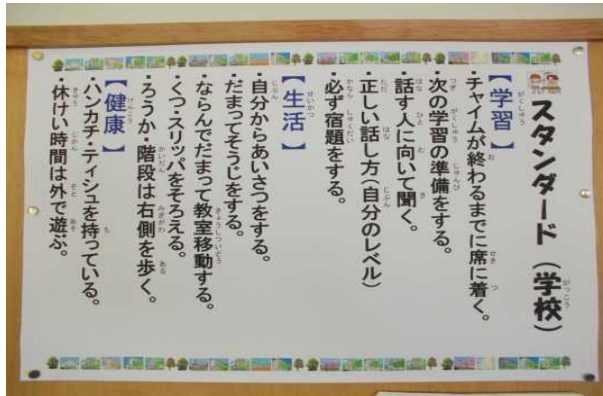 スタンダード（学校）
【学習】
・チャイムが終わるまでに席に着く。
・次の学習の準備をする。
・話す人に向いて聞く。
・正しい話し方（自分のレベル）
・必ず宿題をする。
【生活】
・自分からあいさつをする。
・だまってそうじをする。
・ならんでだまって教室移動する。
・くつ・スリッパをそろえる。
・ろうか・階段は右側を歩く。
【健康】
・ハンカチ・ティシュを持っている。
・休けい時間は外で遊ぶ。